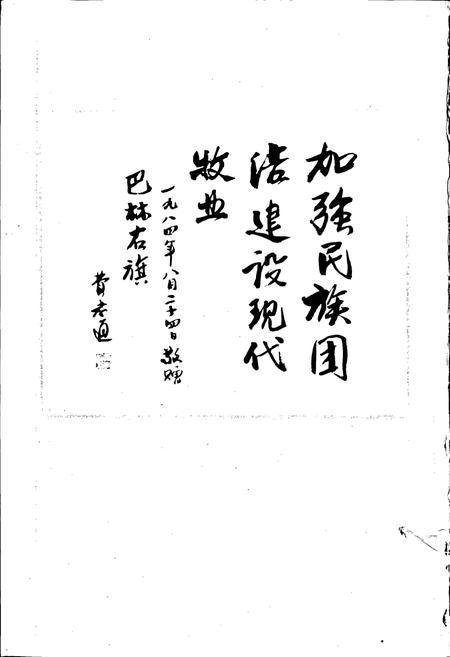 加强民族团
结建设现代
牧业
一九八四年八月二十四日敬赠
巴林右旗
费孝通